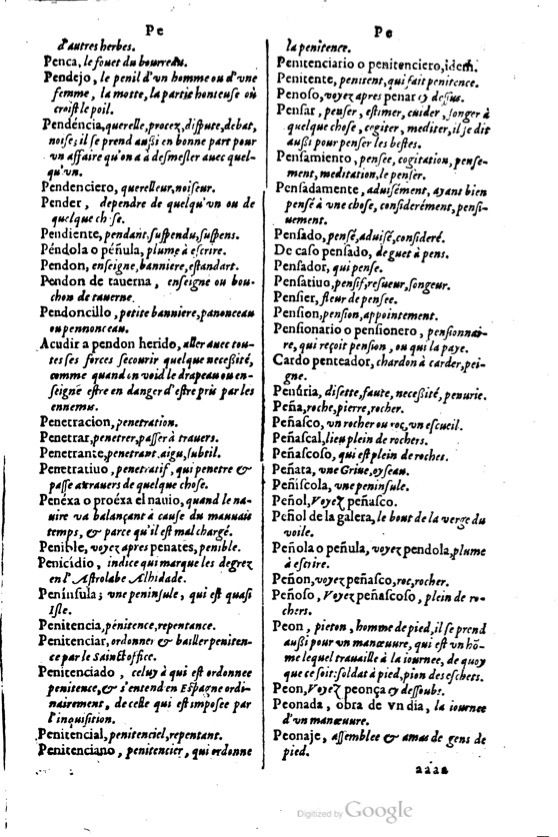 Pe
d'autres herbes.
Penca, le fouet du bourreau.
Pendejo, le penil d'vn homme ou d'vne
femme, la motte, la partie honteuse où
croist le poil.
Pendéncia, querelle, procez, dispute, debat,
noise; il se prend aussi en bonne part pour
vn affaire qu'on a à desmesler auec quel-
qu'vn.
Pendenciero, querelleur, noiseur.
Pender, dependre de quelqu'vn ou de
quelque ch se.
Pendiente, pendant, suspendu, suspens.
Péndola o péñula, plume à escrire.
Pendon, enseigne, banniere, estandart.
Pendon de tauerna, enseigne ou bou-
chon de tauerne.
Pendoncillo, petite banniere, panonceau
ou pennonceau.
Acudir a pendon herido, aller auec tou-
tes ses forces secourir quelque necessité,
comme quand on void le drapeau ou en-
seigne estre en danger d'estre pris par les
ennemis.
Penetracion, penetration.
Penetrar, penetrer, passer à trauers.
Penetrante, penetrant, aigu, subtil.
Penetratiuo, penetratif, qui penetre &
passe atrauers de quelque chose.
Penéxa o proéxa el nauio, quand le na-
uire va balançant à cause du mauuais
temps, & parce qu'il est mal chargé.
Penible, voyez apres penates, penible.
Penicídio, indice qui marque les degrez
en l'Astrolabe Alhidade.
Península; vne peninsule, qui est quasi
Isle.
Penitencia, pénitence, repentance.
Penitenciar, ordonner & bailler peniten-
ce par le Sainct office.
Penitenciado, celuy à qui est ordonnee
penitence, & s'entend en Espagne ordi-
nairement, de celle qui est imposee par
l'inquisition.
Penitencial, penitenciel, repentant.
Penitenciano, penitencier, qui ordonne
Pe
la penitence.
Penitenciario o penitenciero, idem.
Penitente, penitent, qui fait penitence.
Penoso, voyez apres penar cy dessus.
Pensar, penser, estimer, cuider, songer à
quelque chose, cogiter, mediter, il je dit
aussi pour penser les bestes.
Pensamiento, pensee, cogitation, pense-
ment, meditation, le penser.
Pensadamente, aduisément, ayant bien
pensé à vne chose, considerément, pensi-
uement.
Pensado, pensé, aduisé, consideré.
De caso pensado, de guet à pens.
Pensador, qui pense.
Pensatiuo, pensif, resueur, songeur.
Pensier, fleur de pensee.
Pension, pension, appointement.
Pensionario o pensionero, pensionnai-
re, qui reçoit pension, ou qui la paye.
Cardo penteador, chardon à carder, pei-
gne.
Penúria, disette, faute, necessité, penurie.
Peña, roche, pierre, rocher.
Peñasco, vn rocher ou roc, vn escueil.
Peñascal, lieu plein de rochers.
Peñascoso, qui est plein de roches.
Peñata, vne Griue, oyseau.
Peñiscola, vne peninsule.
Peñol, Voyez peñasco.
Peñol de la galera, le bout de la verge du
voile.
Peñola o peñula, voyez pendola, plume
à escrire.
Peñon, voyez peñasco, roc, rocher.
Peñoso, Voyez peñascoso, plein de ro-
chers.
Peon, pieton, homme de pied, il se prend
aussi pour vn manœuure, qui est vn hõ-
me lequel trauaille à la iournee, de quoy
que ce soit: soldat à pied, pion des eschets.
Peon, Voyez peonça & dessoubs.
Peonada, obra de vn dia, la iournee
d'vn manœuure.
Peonaje, assemblee & amas de gens de
pied.
aaaa
Digitized by Google